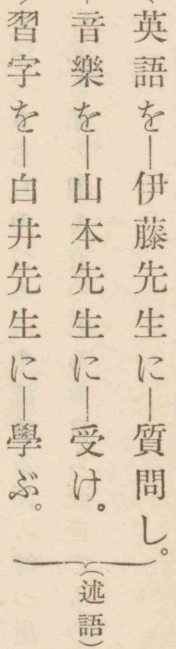 英語を―伊藤先生に―質問し。
音樂を―山本先生に―受け。
習字を―白井先生に―學ぶ。
(述語)